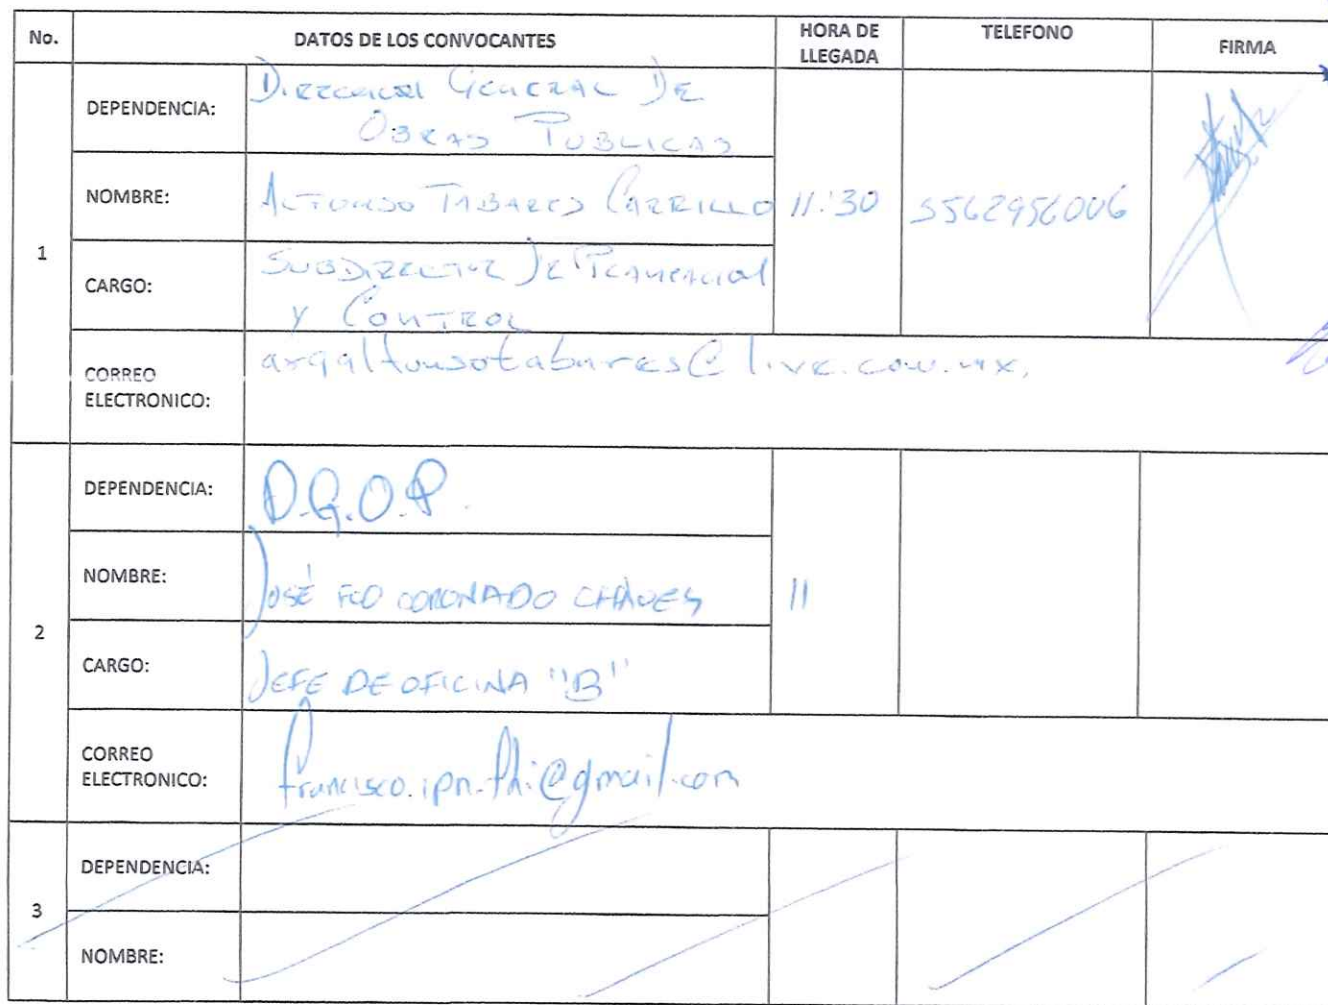 No. DATOS DE LOS CONVOCANTES HORA DE LLEGADA TELEFONO FIRMA
1
DEPENDENCIA: Direccion General De
Obras Publicas
NOMBRE: Alfonso Tabares Carrillo 11:30 5562956006
CARGO: Subdirector de Planeacion
y Control
CORREO ELECTRONICO: arqalfonsotabares@live.com.mx.
2
DEPENDENCIA: D.G.O.P.
NOMBRE: José Fco Coronado Cháves 11
CARGO: Jefe de Oficina "B"
CORREO ELECTRONICO: francisco.ipn.fhi@gmail.com
3
DEPENDENCIA:
NOMBRE: